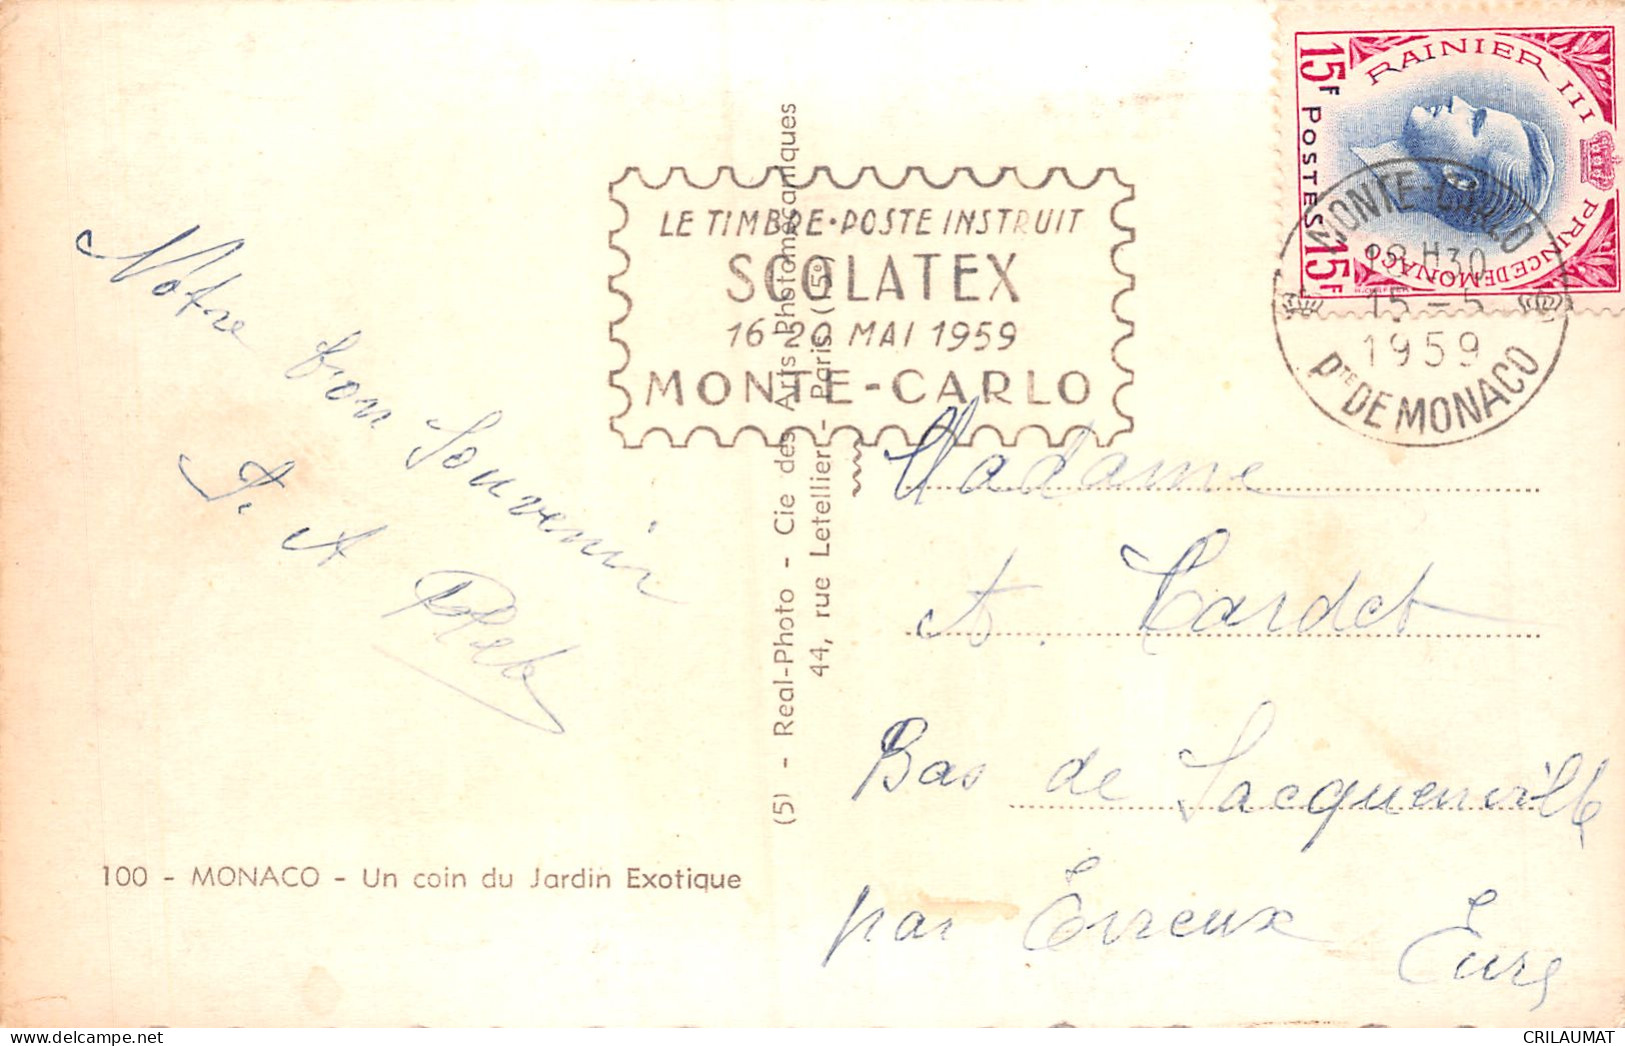 15F
RAINIER III
POSTES
PRINCE DE MONACO
15F
MONTE-CARLO
18H30
15 - 5
1959
PTE DE MONACO
LE TIMBRE·POSTE INSTRUIT
SCOLATEX
16-20 MAI 1959
MONTE-CARLO
Notre bon Souvenir
(5) - Real-Photo - Cie des Arts Photomécaniques
44, rue Letellier - Paris (15e)
Madame
A. Cardet
Bas de Jacquenville
par Evreux
Eure
100 - MONACO - Un coin du Jardin Exotique
CRILAUMAT